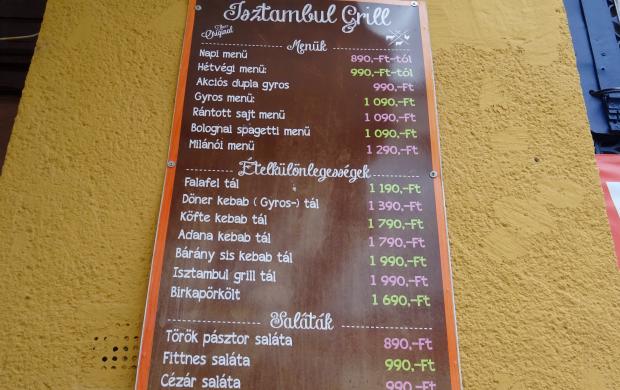 Isztambul Grill
The Original
Menük
Napi menü 890,-Ft-tól
Hétvégi menü: 990,-Ft-tól
Akciós dupla gyros 990,-Ft
Gyros menü: 1 090,-Ft
Rántott sajt menü 1 090,-Ft
Bolognai spagetti menü 1 090,-Ft
Milánói menü 1 290,-Ft
Ételkülönlegességek
Falafel tál 1 190,-Ft
Döner kebab ( Gyros-) tál 1 390,-Ft
Köfte kebab tál 1 790,-Ft
Adana kebab tál 1 790,-Ft
Bárány sis kebab tál 1 990,-Ft
Isztambul grill tál 1 990,-Ft
Birkapörkölt 1 690,-Ft
Saláták
Török pásztor saláta 890,-Ft
Fittnes saláta 990,-Ft
Cézár saláta 990,-Ft